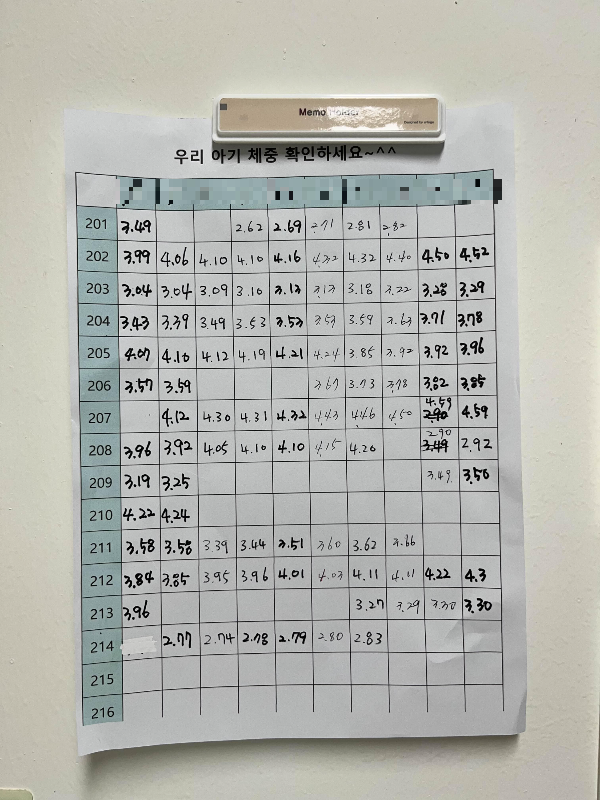 Memo Holder
우리 아기 체중 확인하세요~^^
201 3.49 2.62 2.69 2.71 2.81 2.82
202 3.99 4.06 4.10 4.10 4.16 4.32 4.32 4.40 4.50 4.52
203 3.04 3.04 3.09 3.10 3.12 3.13 3.18 3.22 3.28 3.29
204 3.43 3.39 3.49 3.53 3.53 3.53 3.59 3.63 3.71 3.78
205 4.07 4.10 4.12 4.19 4.21 4.24 3.85 3.92 3.92 3.96
206 3.57 3.59 3.67 3.73 3.78 3.82 3.85
4.59
207 4.12 4.30 4.31 4.32 4.43 4.46 4.50 2.90 4.59
2.90
208 3.96 3.92 4.05 4.10 4.10 4.15 4.20 3.49 2.92
209 3.19 3.25 3.49 3.50
210 4.22 4.24
211 3.58 3.58 3.39 3.44 3.51 3.60 3.62 3.66
212 3.84 3.85 3.95 3.96 4.01 4.03 4.11 4.11 4.22 4.3
213 3.96 3.27 3.29 3.30 3.30
214 2.77 2.74 2.78 2.79 2.80 2.83
215
216